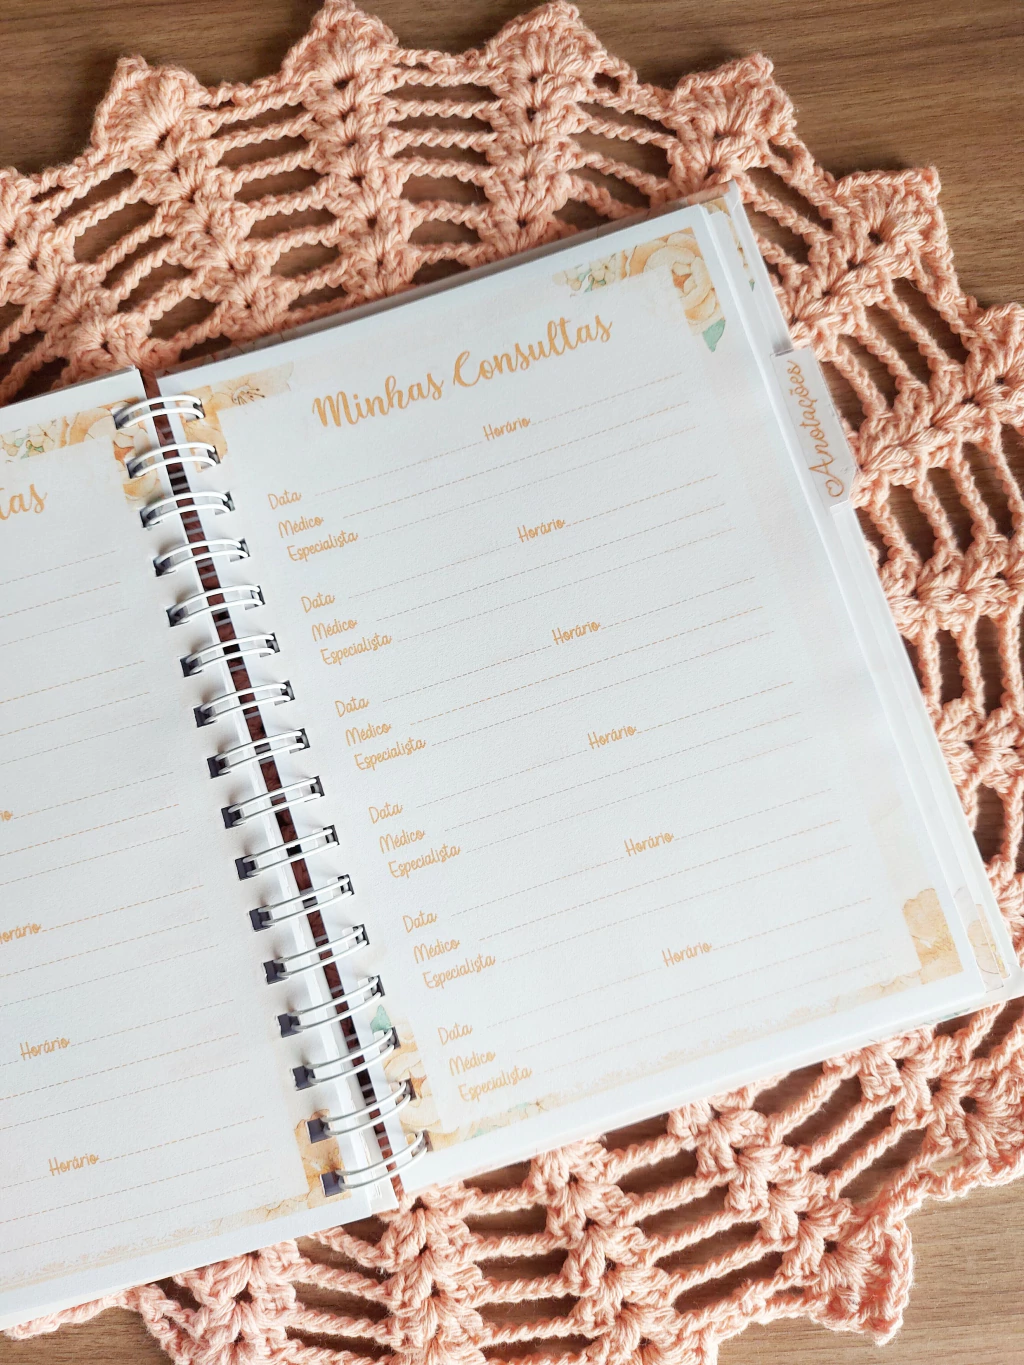 tas
io
orário
Horário
Horário
Minhas Consultas
Data Horário
Médico
Especialista
Data Horário
Médico
Especialista
Data Horário
Médico
Especialista
Data Horário
Médico
Especialista
Data Horário
Médico
Especialista
Data Horário
Médico
Especialista
Anotações